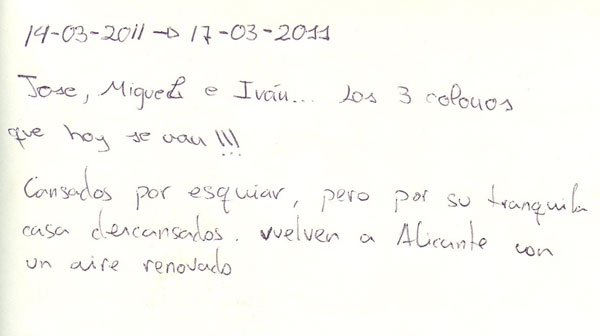 14-03-2011 → 17-03-2011
Jose, Miguel e Iván... los 3 colonos
que hoy se van !!!
Cansados por esquiar, pero por su tranquila
casa descansados. vuelven a Alicante con
un aire renovado